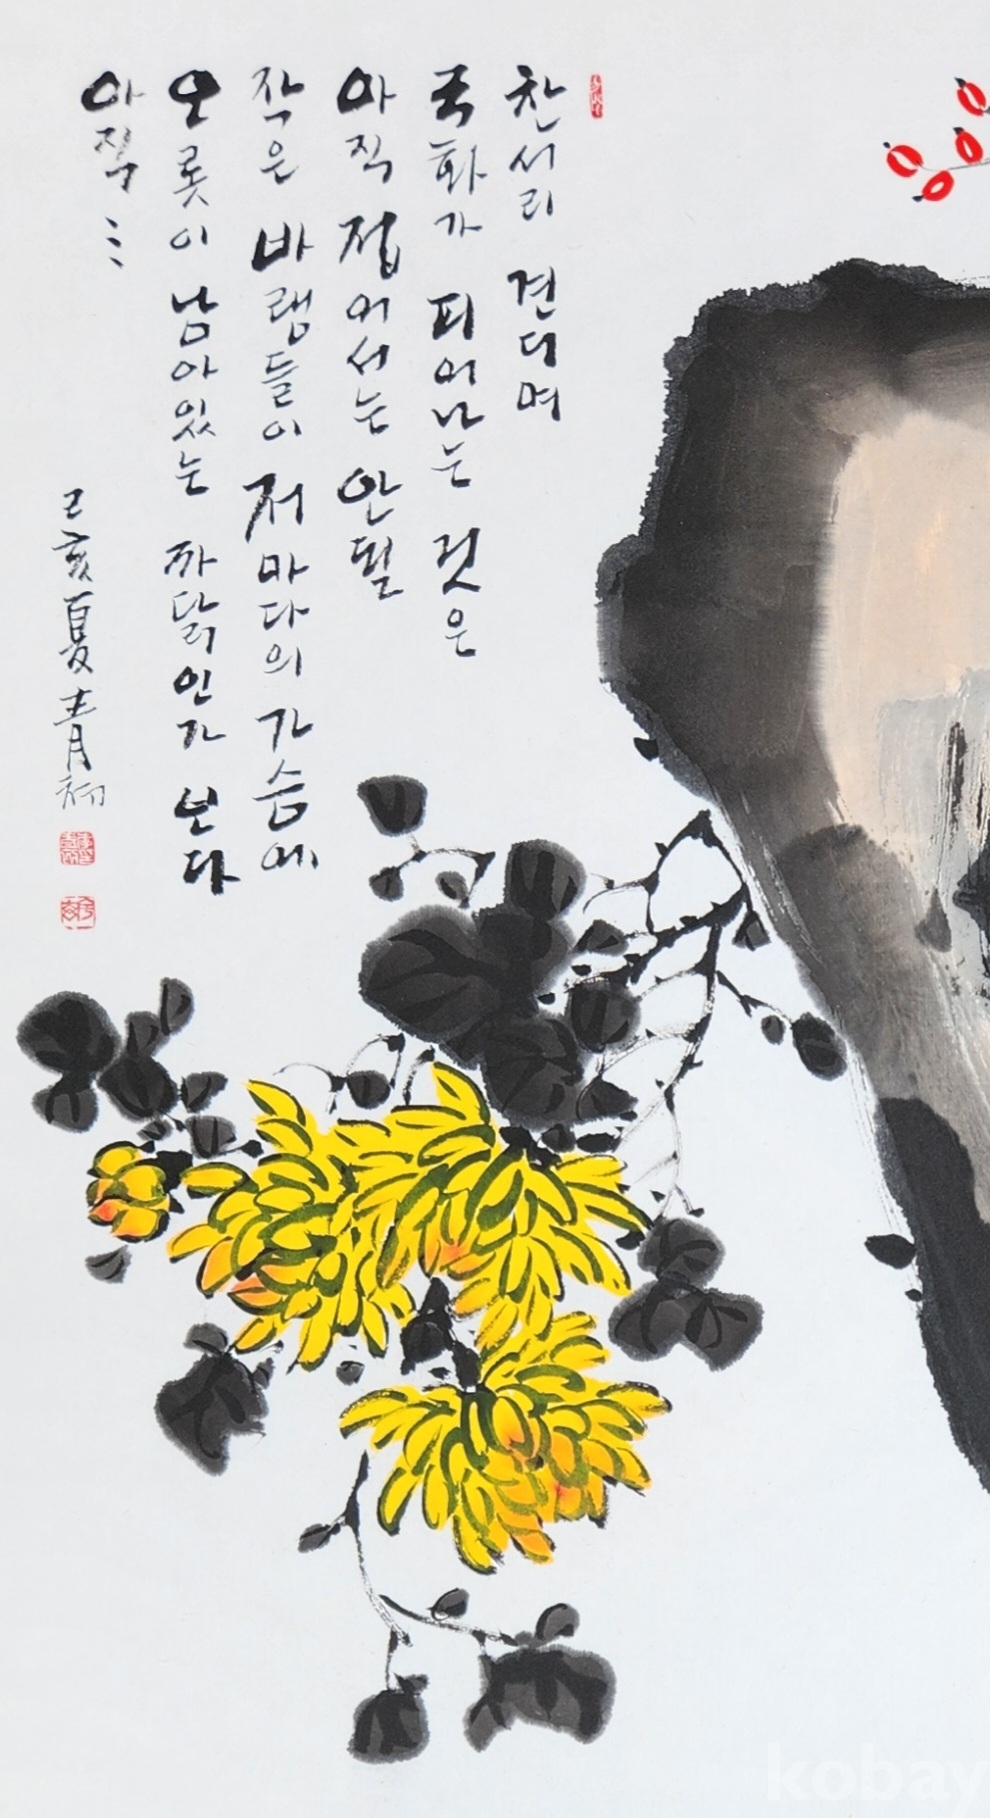 찬서리 견디며
국화가 피어나는 것은
아직 접어서는 안될
작은 바램들이 저마다의 가슴에
오롯이 남아있는 까닭인가 보다
아직 ...
己亥夏 青
kobay